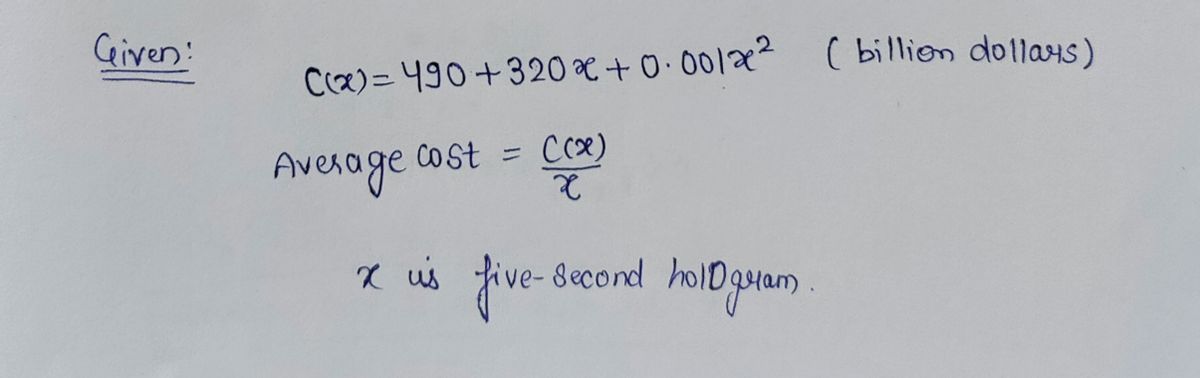 Given:
C(x) = 490 + 320x + 0.001x² ( billion dollars)
Average cost = C(x)/x
x is five-second hologram.